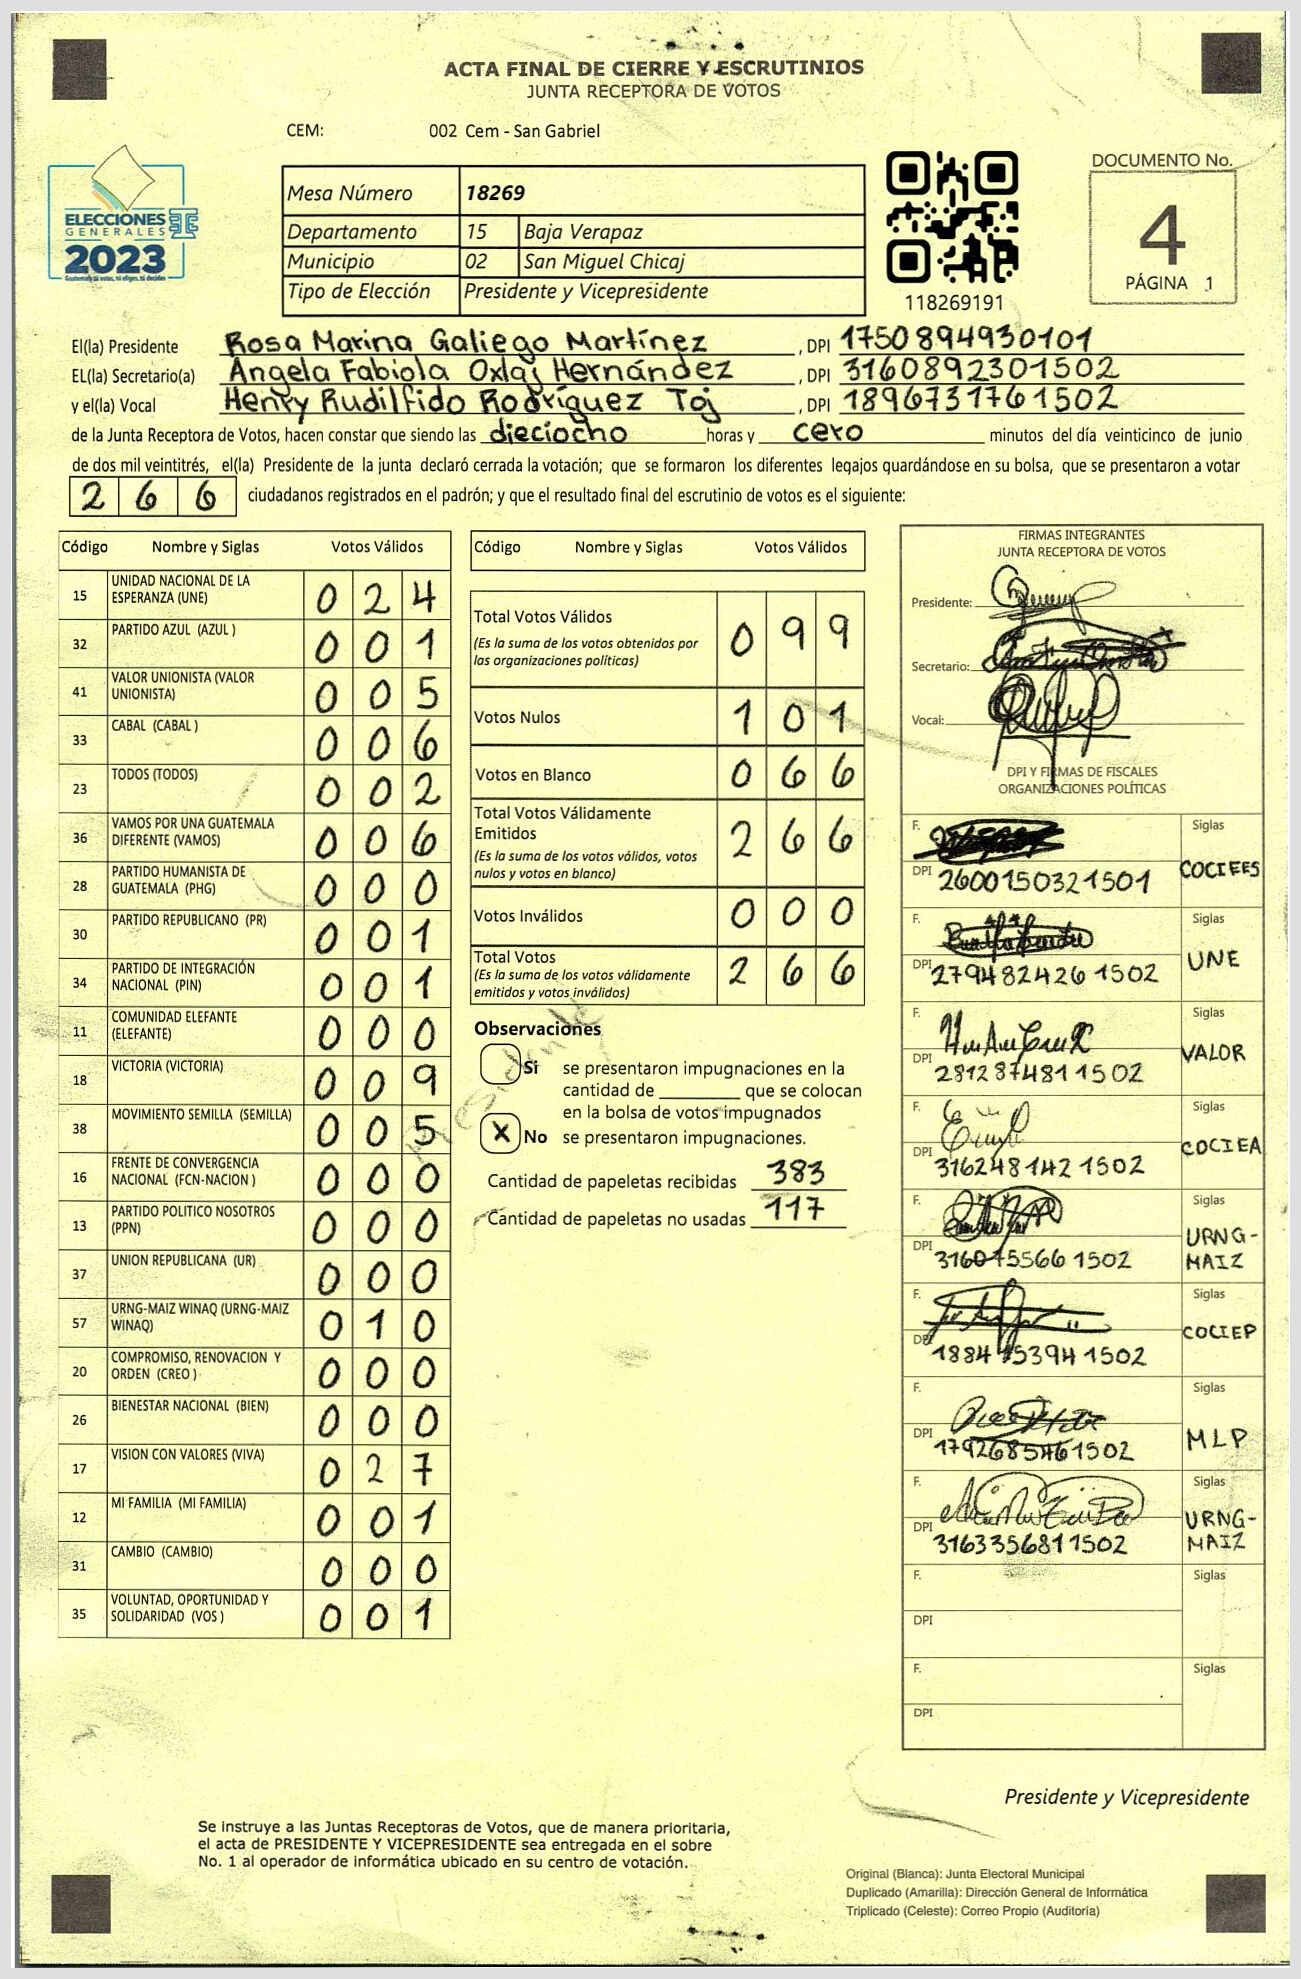 ACTA FINAL DE CIERRE Y ESCRUTINIOS
JUNTA RECEPTORA DE VOTOS
CEM: 002 Cem - San Gabriel
ELECCIONES
GENERALES
2023
Guatemala tú votas, tú eliges, tú decides
Mesa Número 18269
Departamento 15 Baja Verapaz
Municipio 02 San Miguel Chicaj
Tipo de Elección Presidente y Vicepresidente
118269191
DOCUMENTO No.
4
PÁGINA 1
El(la) Presidente Rosa Marina Galiego Martínez , DPI 1750894930101
EL(la) Secretario(a) Angela Fabiola Oxlaj Hernández , DPI 3160892301502
y el(la) Vocal Henry Rudilfido Rodríguez Toj , DPI 1896731761502
de la Junta Receptora de Votos, hacen constar que siendo las dieciocho horas y cero minutos del día veinticinco de junio
de dos mil veintitrés, el(la) Presidente de la junta declaró cerrada la votación; que se formaron los diferentes legajos guardándose en su bolsa, que se presentaron a votar
266 ciudadanos registrados en el padrón; y que el resultado final del escrutinio de votos es el siguiente:
Código Nombre y Siglas Votos Válidos
15 UNIDAD NACIONAL DE LA ESPERANZA (UNE) 0 2 4
32 PARTIDO AZUL (AZUL ) 0 0 1
41 VALOR UNIONISTA (VALOR UNIONISTA) 0 0 5
33 CABAL (CABAL ) 0 0 6
23 TODOS (TODOS) 0 0 2
36 VAMOS POR UNA GUATEMALA DIFERENTE (VAMOS) 0 0 6
28 PARTIDO HUMANISTA DE GUATEMALA (PHG) 0 0 0
30 PARTIDO REPUBLICANO (PR) 0 0 1
34 PARTIDO DE INTEGRACIÓN NACIONAL (PIN) 0 0 1
11 COMUNIDAD ELEFANTE (ELEFANTE) 0 0 0
18 VICTORIA (VICTORIA) 0 0 9
38 MOVIMIENTO SEMILLA (SEMILLA) 0 0 5
16 FRENTE DE CONVERGENCIA NACIONAL (FCN-NACION ) 0 0 0
13 PARTIDO POLITICO NOSOTROS (PPN) 0 0 0
37 UNION REPUBLICANA (UR) 0 0 0
57 URNG-MAIZ WINAQ (URNG-MAIZ WINAQ) 0 1 0
20 COMPROMISO, RENOVACION Y ORDEN (CREO ) 0 0 0
26 BIENESTAR NACIONAL (BIEN) 0 0 0
17 VISION CON VALORES (VIVA) 0 2 7
12 MI FAMILIA (MI FAMILIA) 0 0 1
31 CAMBIO (CAMBIO) 0 0 0
35 VOLUNTAD, OPORTUNIDAD Y SOLIDARIDAD (VOS ) 0 0 1
Código Nombre y Siglas Votos Válidos
Total Votos Válidos 0 9 9
(Es la suma de los votos obtenidos por las organizaciones políticas)
Votos Nulos 1 0 1
Votos en Blanco 0 6 6
Total Votos Válidamente Emitidos 2 6 6
(Es la suma de los votos válidos, votos nulos y votos en blanco)
Votos Inválidos 0 0 0
Total Votos 2 6 6
(Es la suma de los votos válidamente emitidos y votos inválidos)
Observaciones
Si se presentaron impugnaciones en la
cantidad de ________ que se colocan
en la bolsa de votos impugnados
X No se presentaron impugnaciones.
Cantidad de papeletas recibidas 383
Cantidad de papeletas no usadas 117
Presidente
FIRMAS INTEGRANTES
JUNTA RECEPTORA DE VOTOS
Presidente:
Secretario:
Vocal:
DPI Y FIRMAS DE FISCALES
ORGANIZACIONES POLÍTICAS
F. Siglas
DPI 2600150321501 COCIEES
F. Siglas
DPI 2794824261502 UNE
F. Siglas
DPI 2812874811502 VALOR
F. Siglas
DPI 3162481421502 COCIEA
F. Siglas
DPI 3160755661502 URNG-MAIZ
F. Siglas
DPI 1884153941502 COCIEP
F. Siglas
DPI 1792685461502 MLP
F. Siglas
DPI 3163356811502 URNG-MAIZ
F. Siglas
DPI
F. Siglas
DPI
Presidente y Vicepresidente
Se instruye a las Juntas Receptoras de Votos, que de manera prioritaria,
el acta de PRESIDENTE Y VICEPRESIDENTE sea entregada en el sobre
No. 1 al operador de informática ubicado en su centro de votación.
Original (Blanca): Junta Electoral Municipal
Duplicado (Amarilla): Dirección General de Informática
Triplicado (Celeste): Correo Propio (Auditoría)